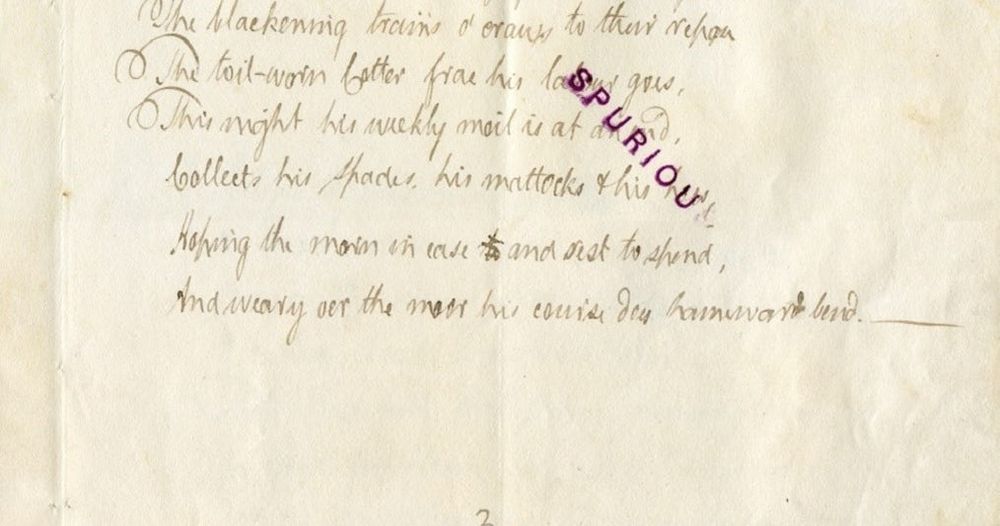 The blackening trains o' craws to their repose
The toil-worn Cotter frae his labour goes,
This night his weekly moil is at an end,
Collects his spades, his mattocks & his hoes,
Hoping the morn in ease to and rest to spend,
And weary oer the moor his course does hameward bend.
SPURIOUS
2